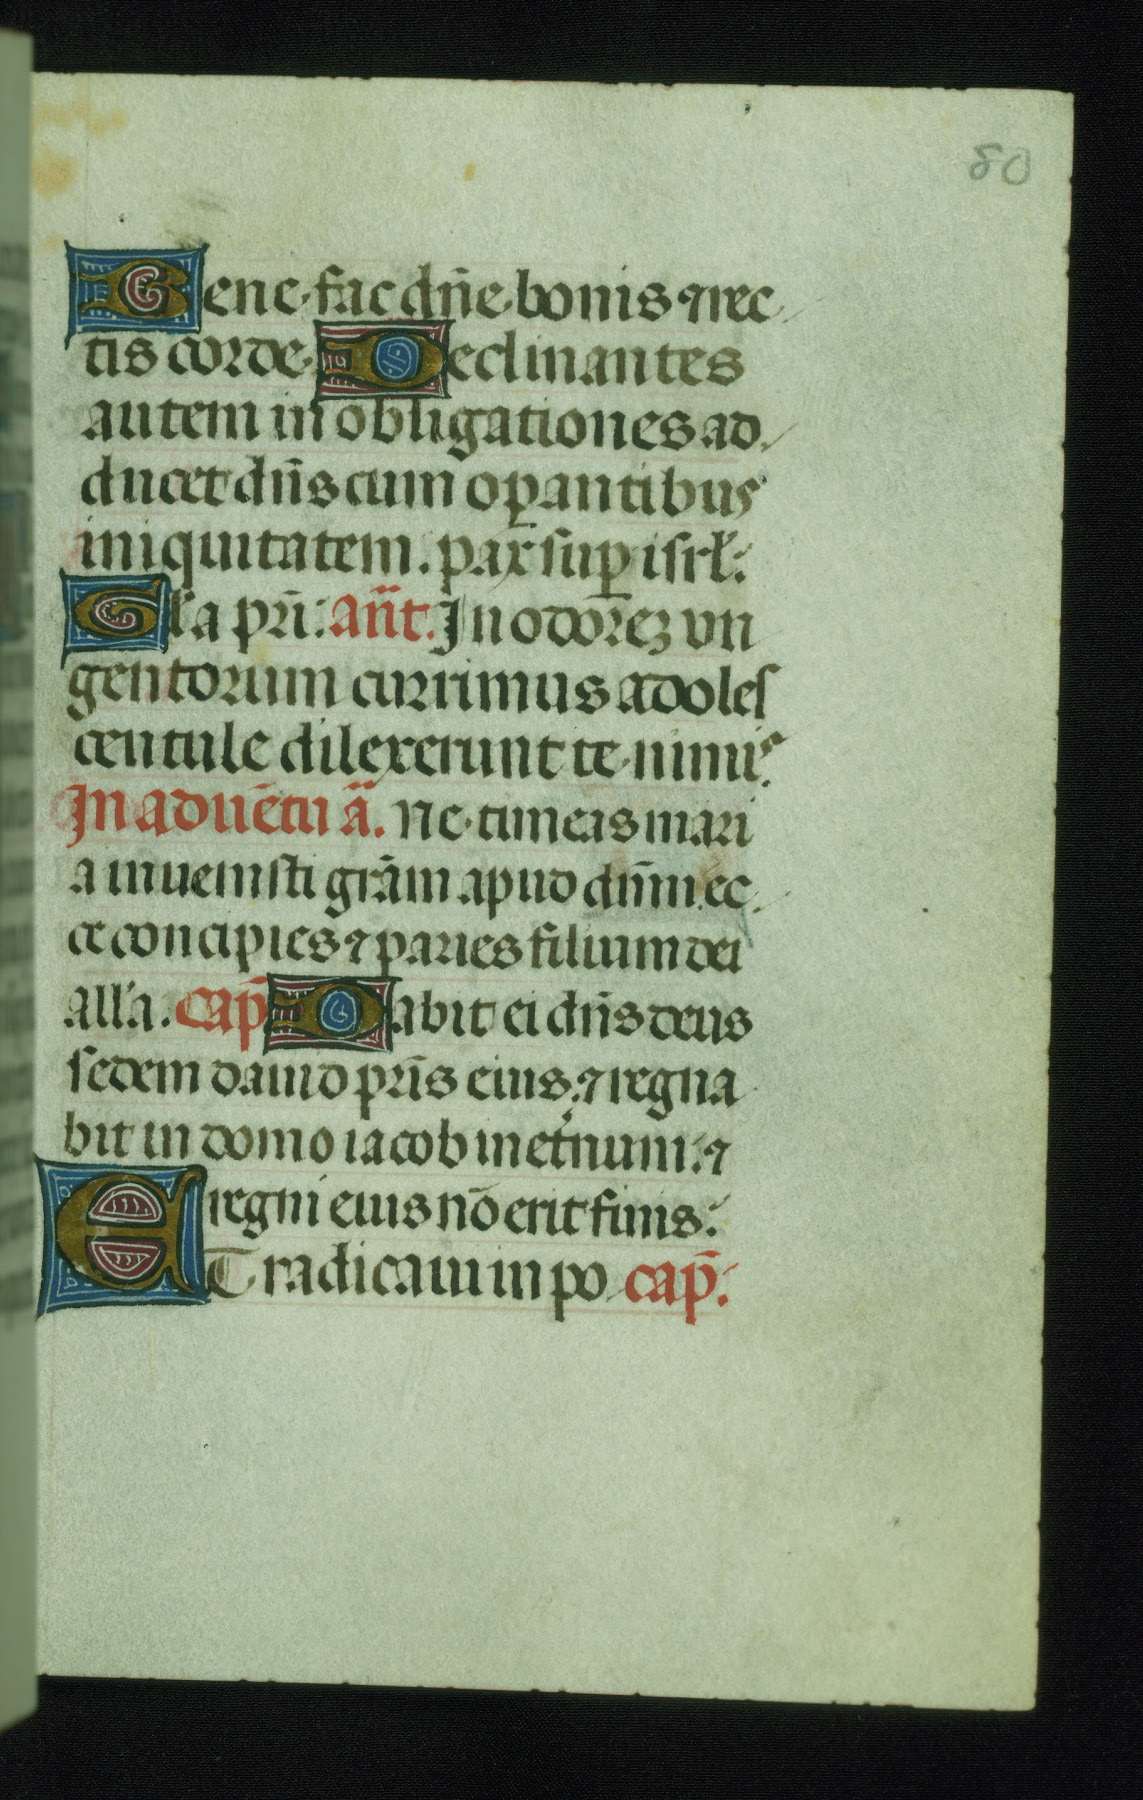 80
Bene fac dñe bonis ⁊ rec
tis corde Declinantes
autem in obligationes ad
ducet dñs cum oꝑantibus
iniquitatem. pax suꝑ isrł:
Gła pr̃i: añt. In odorẽꝫ vn
gentorum currimus adoles
centule dilexerunt te nimis.
In aduẽtu ã. Ne timeas mari
a inuenisti grãm apud dñm ec
ce concipies ⁊ paries filium dei
alła. cap̃ Dabit ei dñs deus
sedem dauid pr̃is eius: ⁊ regna
bit in domo iacob in et̃num: ⁊
regni eius nõ erit finis:
ET radicaui in po cap̃: